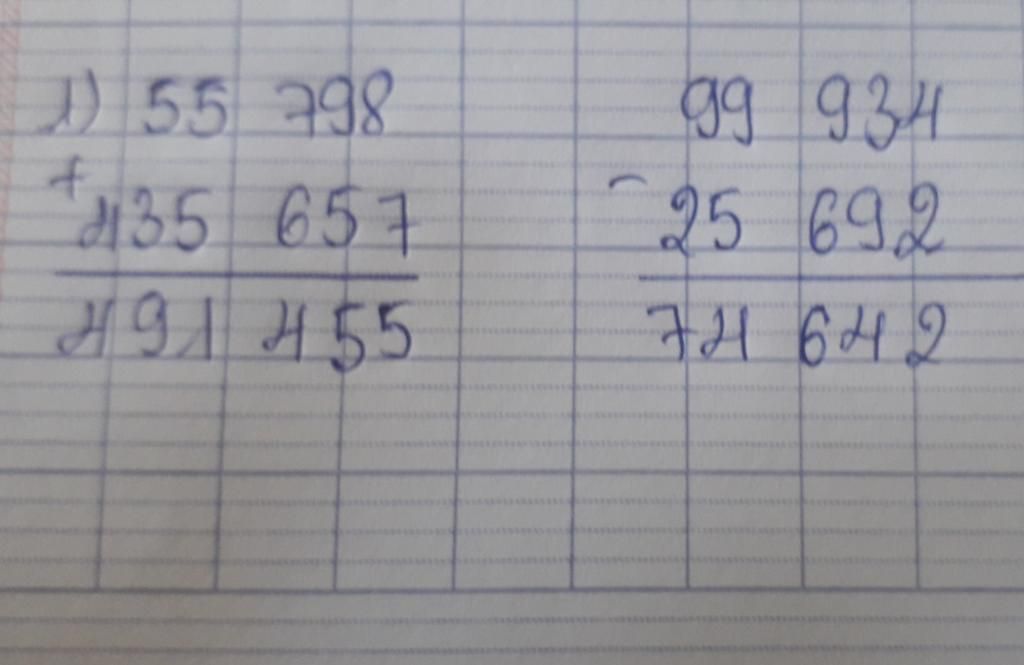 1) 55 798 99 934
+ 435 657 - 25 692
491 455 74 642